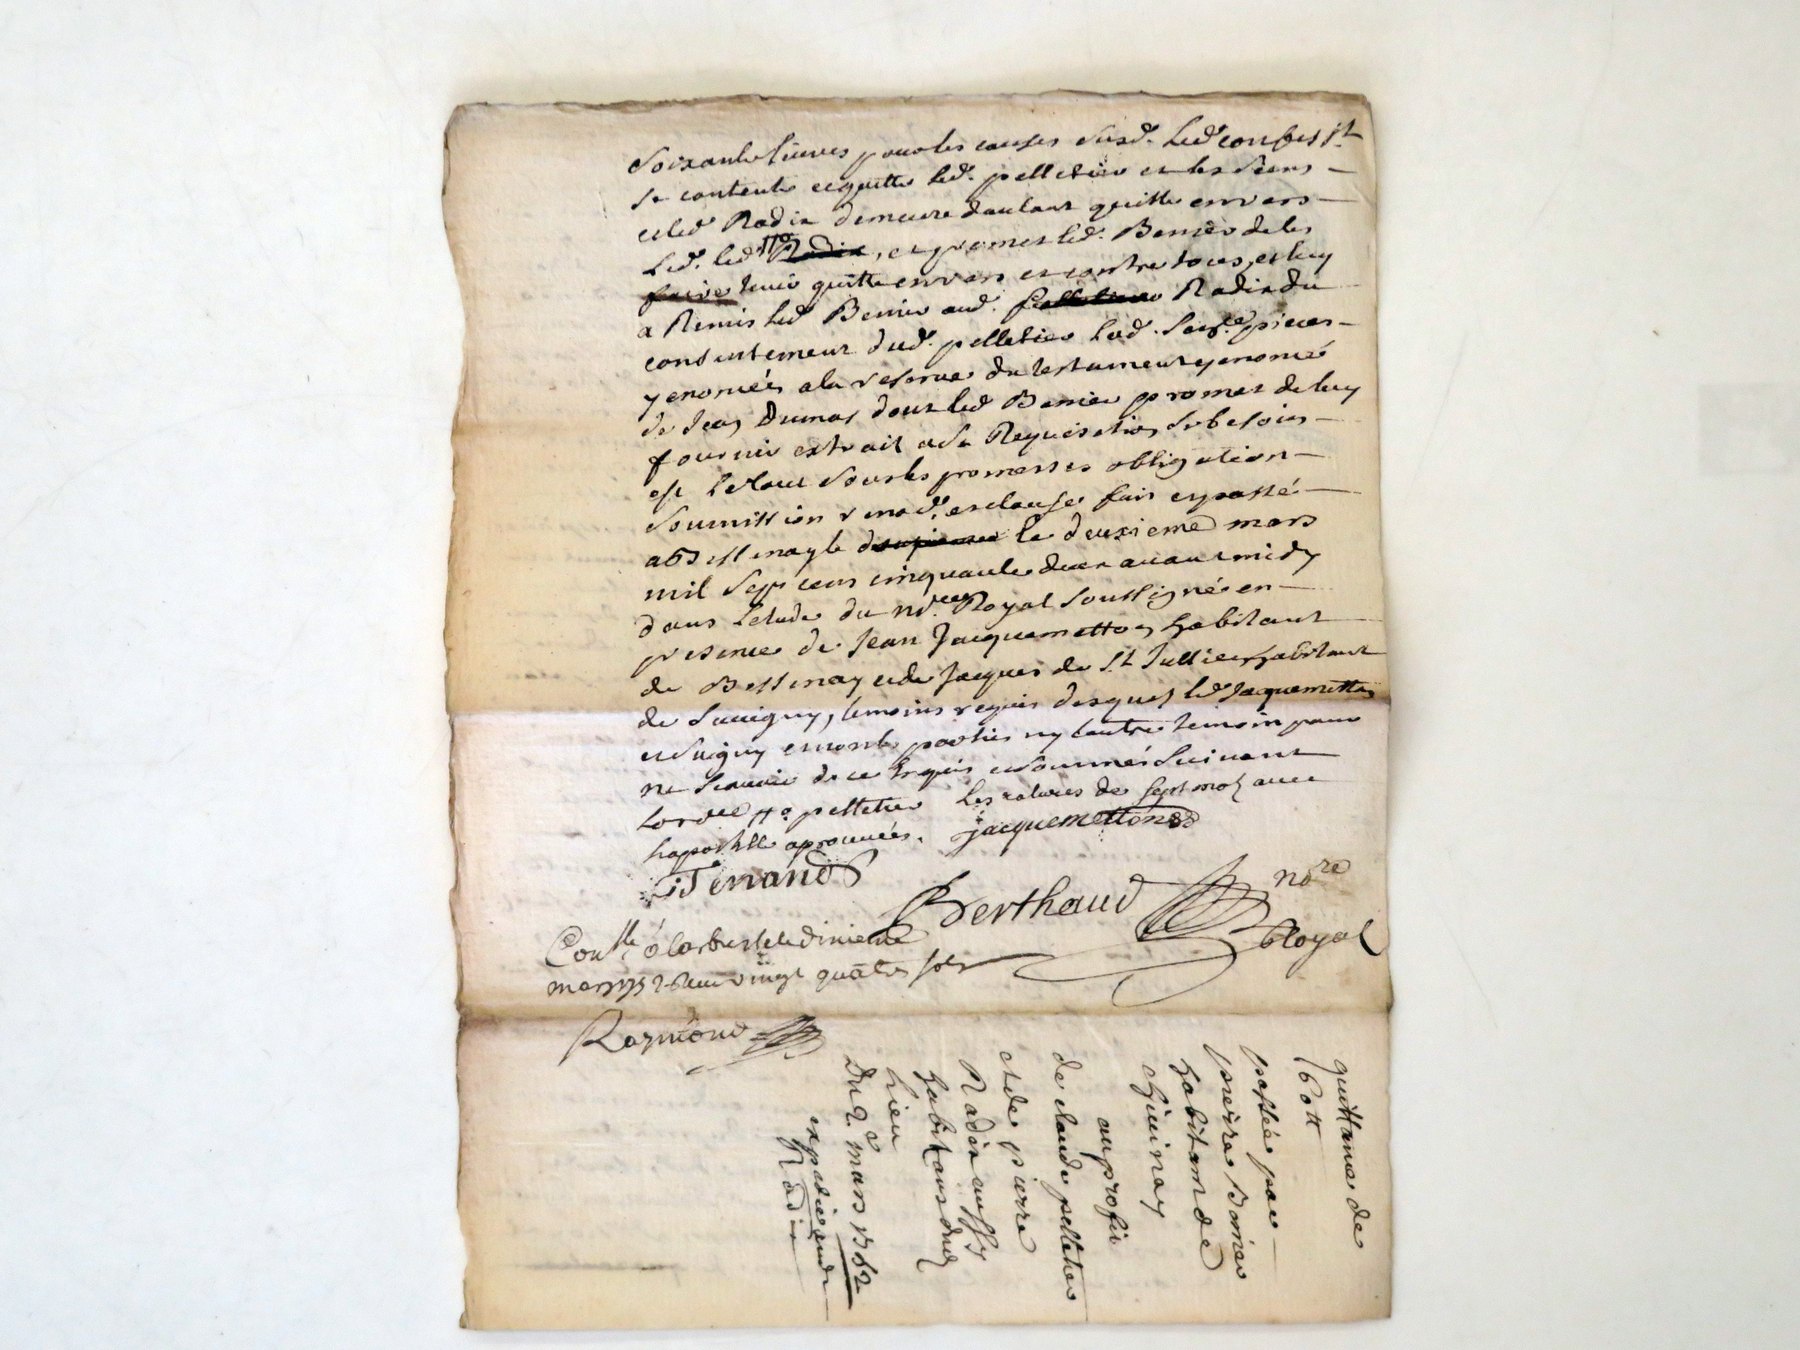 Soixante livres pour les causes susd. led confess st
se contente et quitte led. pelletier et les siens
et led Radix demeure dautant quitte envers
led. led Radix, et promet led. Benier de les
faire tenir quitte envers et contre tous, et luy
a Remis led Benier aud. pelletier Radix du
consentement dud. pelletier lad. pieces
y enoncées a la reserve du testament y enoncé
de Jean Dumas dont led Benier promet de luy
fournir extrait a sa Requisition sy besoin
est le tout sous les promesses obligation
soumission renod. et clause fait et passé
a Bessenay le le deuxieme mars
mil sept cens cinquante deux avant midy
dans letude du nore Royal soussigné en
presence de Jean Jacquemetton habitant
de Bessenay et de Jacques de St Jullien habitant
de Savigny, temoins requis desquels led Jacquemetton
et signy et non les parties ny lautre temoin pour
ne scavoir de ce enquis et sommés suivant
lordce pelletier les ratures de sept mots avec
lapostille aprouvées. jacquemetton
Berthaud nore
Royal
Conlle a Larbresle le dixieme
mars 1752 Reçu vingt quatre sols
Raymond
quittance de
60 tt
passée par
pierre Benier
habitant de
Chivinay
au profit
de claude pelletier
et de pierre
Radix aussy
habitans dud
lieu
Du 2e mars 1752
expediée aud
Radix